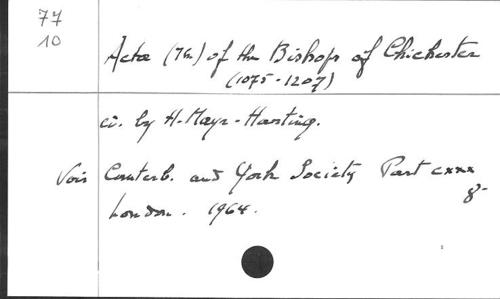 77
10
Acta (The) of the Bishops of Chichester
(1075-1207)
ed. by H. Mayr-Harting.
Voir Canterb. and York Society Part cxxx
London. 1964.
8°